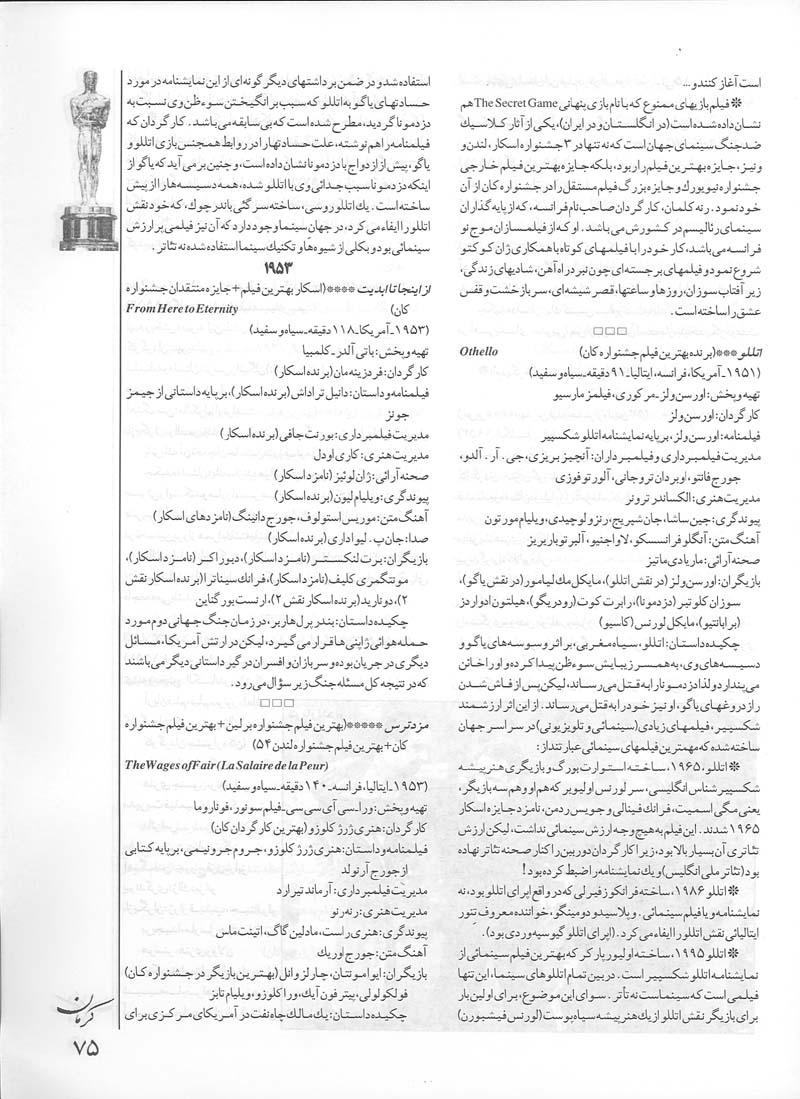 است آغاز کنند و...
❊ فیلم بازیهای ممنوع که با نام بازی پنهانی The Secret Game هم
نشان داده شده است (در انگلستان و در ایران)، یکی از آثار کلاسیک
ضد جنگ سینمای جهان است که نه تنها در ۳ جشنواره اسکار، لندن و
ونیز، جایزه بهترین فیلم را ربود، بلکه جایزه بهترین فیلم خارجی
جشنواره نیویورک و جایزه بزرگ فیلم مستقل را در جشنواره کان از آن
خود نمود. رنه کلمان، کارگردان صاحب نام فرانسه، که از پایه گذاران
سینمای رئالیسم در کشورش می باشد. او که از فیلمسازان موج نو
فرانسه می باشد، کار خود را با فیلمهای کوتاه با همکاری ژان کوکتو
شروع نمود و فیلمهای برجسته ای چون نبرد راه آهن، شادیهای زندگی،
زیر آفتاب سوزان، روزها و ساعتها، قصر شیشه ای، سرباز خشت و قفس
عشق را ساخته است.
□□□
اتللو *** (برنده بهترین فیلم جشنواره کان) Othello
(۱۹۵۱ـ آمریکا، فرانسه، ایتالیا ـ ۹۱ دقیقه ـ سیاه و سفید)
تهیه و پخش: اورسن ولز ـ مرکوری، فیلمز مارسیو
کارگردان: اورسن ولز
فیلمنامه: اورسن ولز، برپایه نمایشنامه اتللو شکسپیر
مدیریت فیلمبرداری و فیلمبرداران: آنچیز بریزی، جی. آر. آلدو،
جورج فانتو، اوبردان تروجانی، آلورتو فوزی
مدیریت هنری: الکساندر ترونر
پیوندگری: جین ساشا، جان شیریج، رنزو لوچیدی، ویلیام مورتون
آهنگ متن: آنگلو فرانسسکو، لاواجنیو، آلبرتو باربریز
صحنه آرائی: ماریادی ماتیز
بازیگران: اورسن ولز (در نقش اتللو)، مایکل مک لیامور (در نقش یاگو)،
سوزان کلوتیر (دزدمونا)، رابرت کوت (رودریگو)، هیلتون ادواردز
(برابانتیو)، مایکل لورنس (کاسیو)
چکیده داستان: اتللو، سیاه مغربی، بر اثر وسوسه های یاگو و
دسیسه های وی، به همسر زیبایش سوءظن پیدا کرده و او را خائن
می پندارد و لذا دزدمونا را به قتل می رساند، لیکن پس از فاش شدن
راز دروغهای یاگو، او نیز خود را به قتل می رساند. از این اثر ارزشمند
شکسپیر، فیلمهای زیادی (سینمائی و تلویزیونی) در سراسر جهان
ساخته شده که مهمترین فیلمهای سینمائی عبارتنداز:
❊ اتللو، ۱۹۶۵، ساخته استوارت بورگ و بازیگری هنرپیشه
شکسپیرشناس انگلیسی، سر لورنس اولیویر که هم او و هم سه بازیگر،
یعنی مگی اسمیت، فرانک فینالی و جویس ردمن، نامزد جایزه اسکار
۱۹۶۵ شدند. این فیلم به هیچ وجه ارزش سینمائی نداشت، لیکن ارزش
تئاتری آن بسیار بالا بود، زیرا کارگردان دوربین را کنار صحنه تئاتر نهاده
بود (تئاتر ملی انگلیس) و یک نمایشنامه را ضبط کرده بود!
❊ اتللو ۱۹۸۶، ساخته فرانکو زفیرلی که در واقع اپرای اتللو بود، نه
نمایشنامه و یا فیلم سینمائی. و پلاسیدو دومینگو، خواننده معروف تِنور
ایتالیائی نقش اتللو را ایفاء می کرد. (اپرای اتللو گیوسپه وردی بود).
❊ اتللو ۱۹۹۵، ساخته اولیور پارکر که بهترین فیلم سینمائی از
نمایشنامه اتللو شکسپیر است. در بین تمام اتللوهای سینما، این تنها
فیلمی است که سینماست نه تأتر. سوای این موضوع، برای اولین بار
برای بازیگر نقش اتللو از یک هنرپیشه سیاه پوست (لورنس فیشبورن)
استفاده شد و در ضمن برداشتهای دیگرگونه ای از این نمایشنامه در مورد
حسادتهای یاگو به اتللو که سبب برانگیختن سوءظن وی نسبت به
دزدمونا گردید، مطرح شده است که بی سابقه می باشد. کارگردان که
فیلمنامه را هم نوشته، علت حسادتها را در روابط همجنس بازی اتللو و
یاگو، پیش از ازدواج با دزدمونا نشان داده است، و چنین برمی آید که یاگو از
اینکه دزدمونا سبب جدائی وی با اتللو شده، همه دسیسه ها را از پیش
ساخته است. یک اتللو روسی، ساخته سرگئی باندرچوک، که خود نقش
اتللو را ایفاء می کرد، در جهان سینما وجود دارد که آن نیز فیلمی پرارزش
سینمائی بود و بکلی از شیوه ها و تکنیک سینما استفاده شده نه تئاتر.
۱۹۵۳
از اینجا تا ابدیت **** (اسکار بهترین فیلم + جایزه منتقدان جشنواره
کان) From Here to Eternity
(۱۹۵۳ـ آمریکا ـ ۱۱۸ دقیقه ـ سیاه و سفید)
تهیه و پخش: باتی آلدر ـ کلمبیا
کارگردان: فردزینه مان (برنده اسکار)
فیلمنامه و داستان: دانیل تراداش (برنده اسکار)، برپایه داستانی از جیمز
جونز
مدیریت فیلمبرداری: بورنت جافی (برنده اسکار)
مدیریت هنری: کاری اودل
صحنه آرائی: ژان لوئیز (نامزد اسکار)
پیوندگری: ویلیام لیون (برنده اسکار)
آهنگ متن: موریس استولوف، جورج دانینگ (نامزدهای اسکار)
صدا: جان پ. لیواداری (برنده اسکار)
بازیگران: برت لنکستر (نامزد اسکار)، دبوراکر (نامزد اسکار)،
مونتگمری کلیف (نامزد اسکار)، فرانک سیناترا (برنده اسکار نقش
۲)، دونارید (برنده اسکار نقش ۲)، ارنست بورگناین
چکیده داستان: بندر پرل هاربر، در زمان جنگ جهانی دوم مورد
حمله هوائی ژاپنی ها قرار می گیرد، لیکن در ارتش آمریکا، مسائل
دیگری در جریان بوده و سربازان و افسران درگیر داستانی دیگر می باشند
که در نتیجه کل مسئله جنگ زیر سؤال می رود.
□□□
مزد ترس ***** (بهترین فیلم جشنواره برلین + بهترین فیلم جشنواره
کان + بهترین فیلم جشنواره لندن ۵۴)
The Wages of Fair (La Salaire de la Peur)
(۱۹۵۳ـ ایتالیا، فرانسه ـ ۱۴۰ دقیقه ـ سیاه و سفید)
تهیه و پخش: ورا ـ سی آی سی سی ـ فیلم سونور، فونا روما
کارگردان: هنری ژرژ کلوزو (بهترین کارگردان کان)
فیلمنامه و داستان: هنری ژرژ کلوزو، جروم جرونیمی، برپایه کتابی
از جورج آرنولد
مدیریت فیلمبرداری: آرماند تیرارد
مدیریت هنری: رنه رنو
پیوندگری: هنری راست، مادلین گاگ، اتینت ماس
آهنگ متن: جورج اوریک
بازیگران: ایو امونتان، چارلز وانل (بهترین بازیگر در جشنواره کان)
فولکولولی، پیترفون آیک، ورا کلوزو، ویلیام تابز
چکیده داستان: یک مالک چاه نفت در آمریکای مرکزی برای
کرمان
۷۵